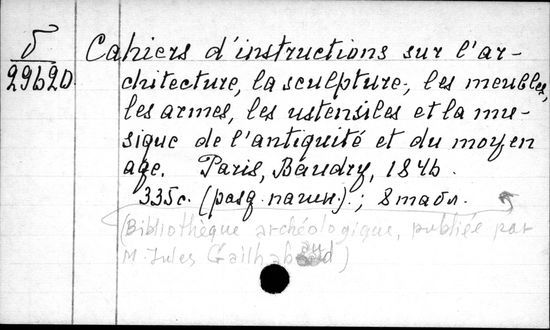 б
29620
Cahiers d'instructions sur l'ar-
chitecture, la sculpture, les meubles,
les armes, les ustensiles et la mu-
sique de l'antiquité et du moyen
age. Paris, Baudry, 1846.
335с. (разд. паган.); 8 табл.
(Bibliothèque archéologique, publiée par
M. Jules Gailhabaud)